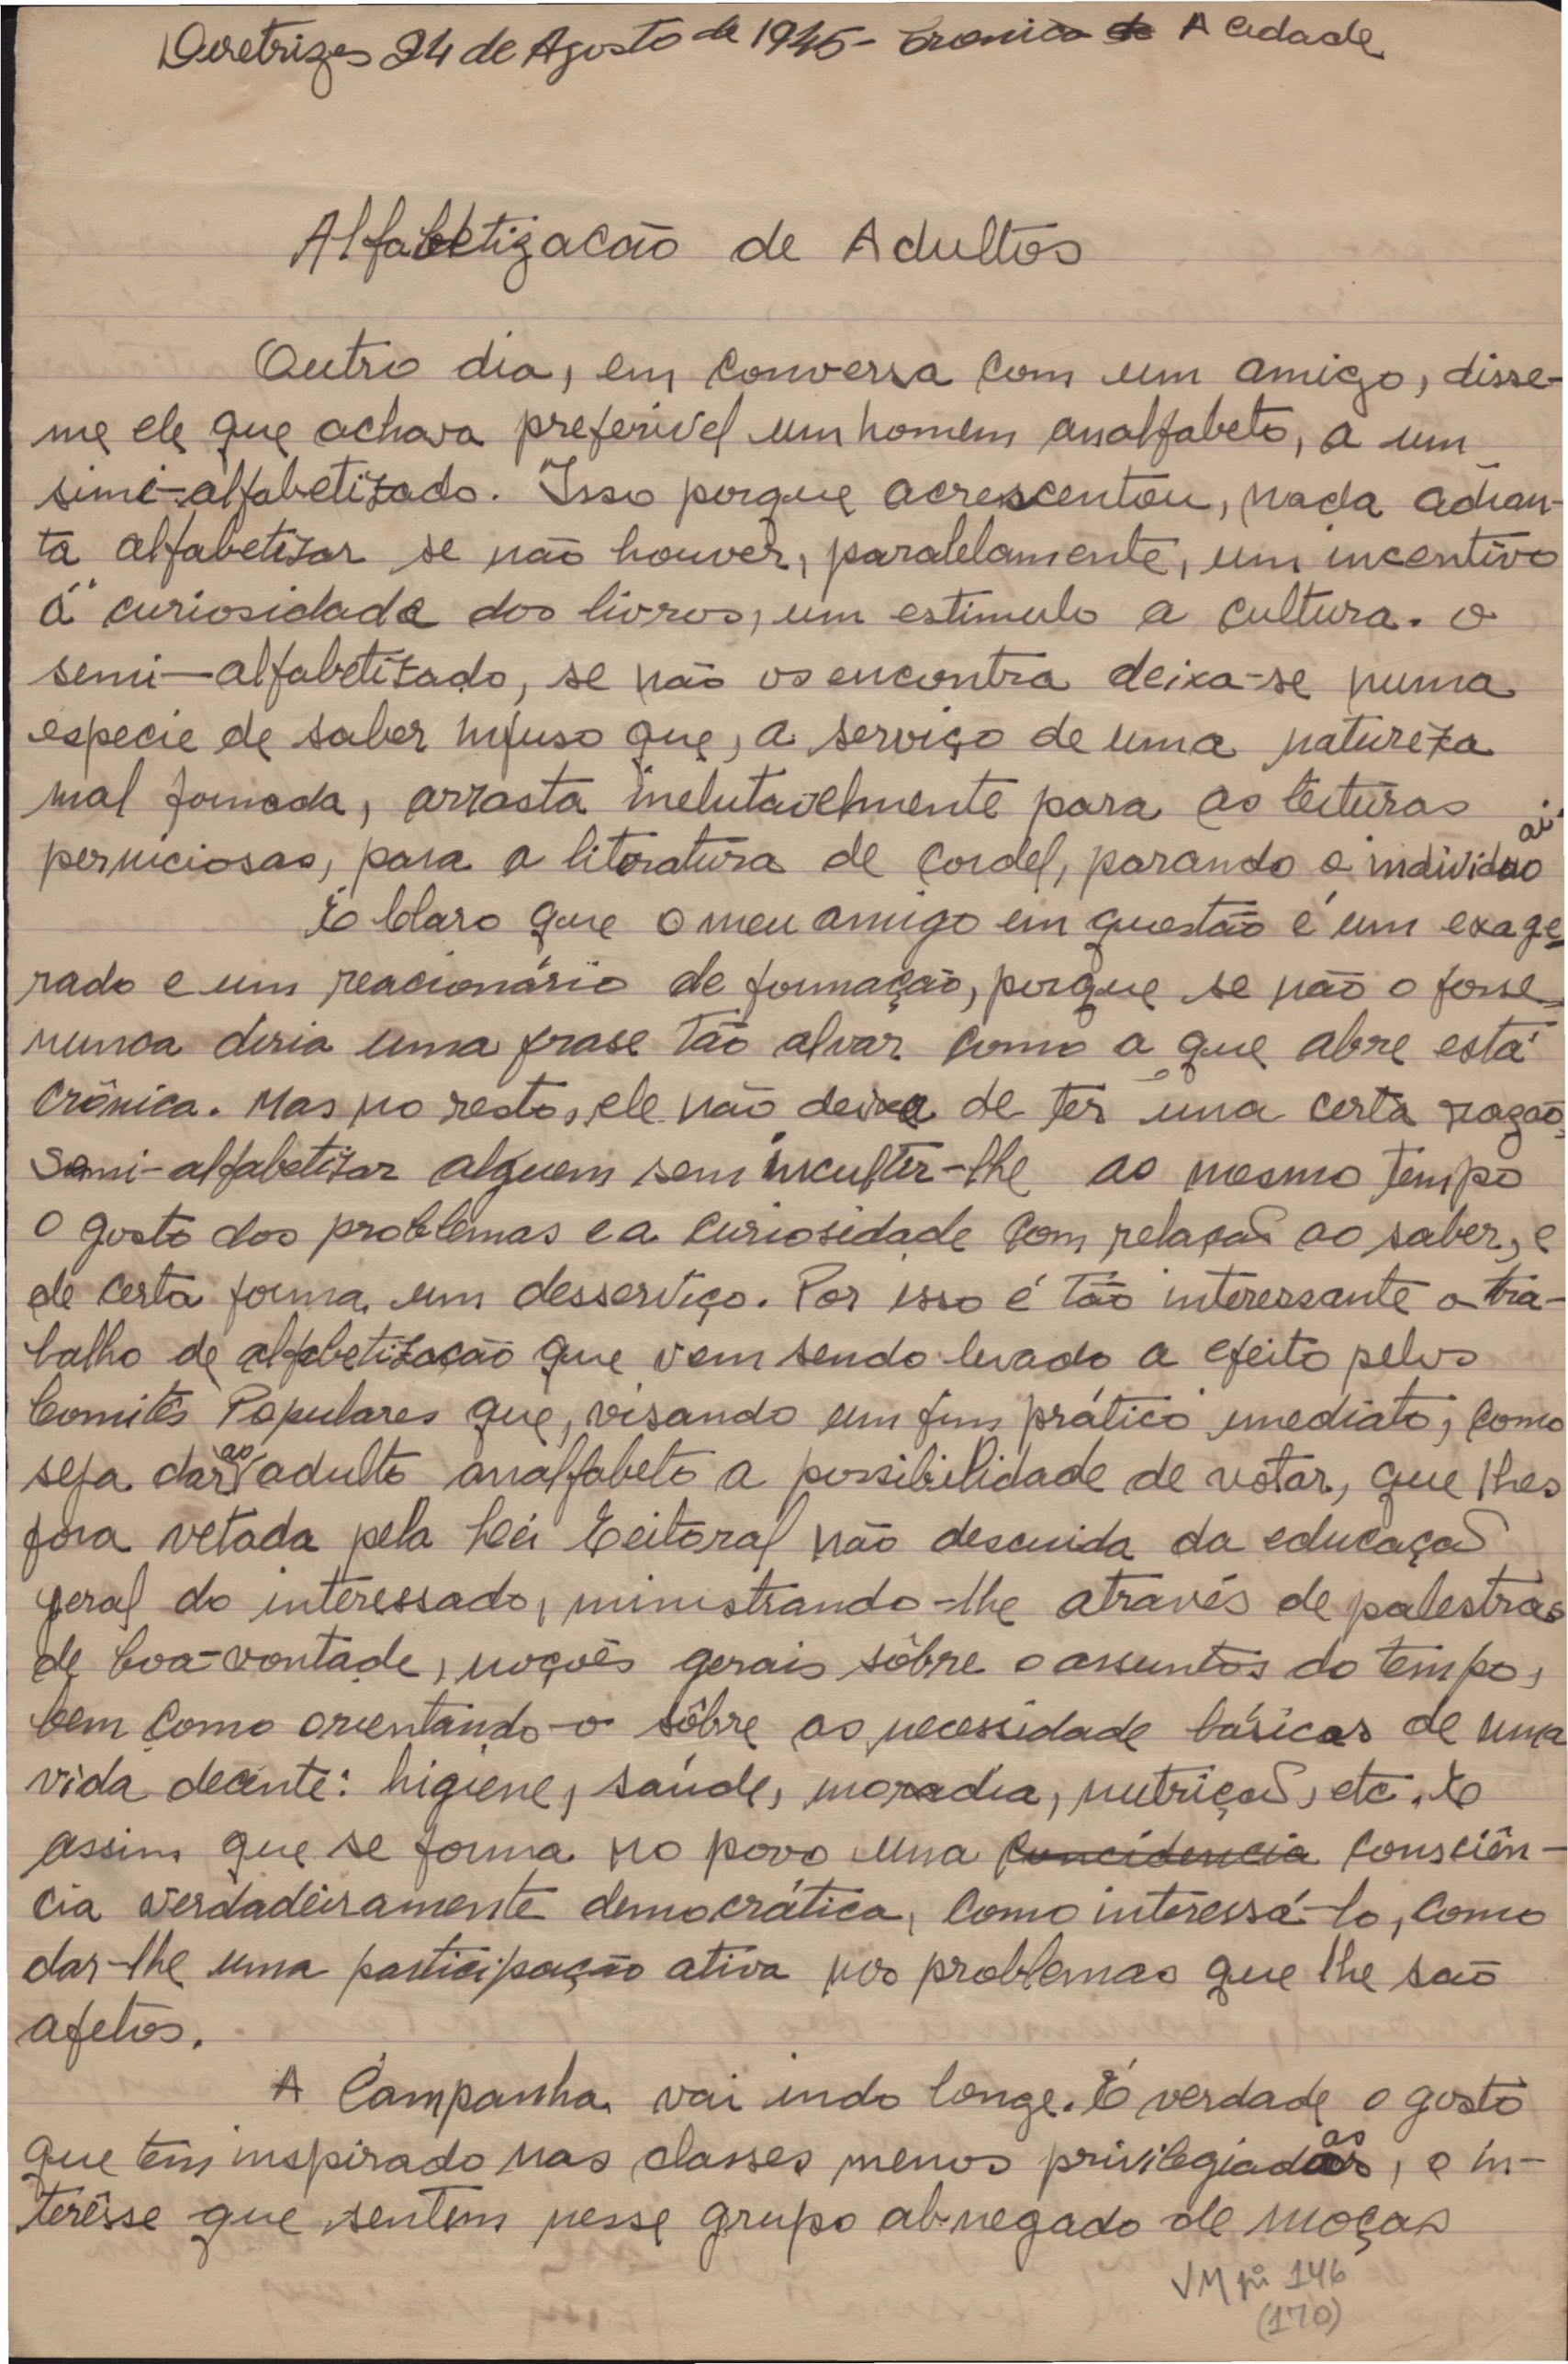 Diretrizes 24 de Agosto de 1945 - Cronica de A Cidade
Alfabetizacão de Adultos
Outro dia, em conversa com um amigo, disse-
me ele que achava preferível um homem analfabeto, a um
simi-alfabetizado. Isso porque acrescentou, nada adian-
ta alfabetizar se não houver, paralelamente, um incentivo
á curiosidade dos livros, um estimulo a cultura. O
semi-alfabetizado, se não os encontra deixa-se numa
especie de saber infuso que, a serviço de uma natureza
mal formada, arrasta inelutavelmente para as leituras
perniciosas, para a literatura de cordel, parando o individuo aí.
É claro que o meu amigo em questão é um exage-
rado e um reacionário de formação, porque se não o fosse
nunca diria uma frase tão alvar como a que abre está
crônica. Mas no resto, ele não deixa de ter uma certa razão.
Semi-alfabetizar alguem sem incultir-lhe ao mesmo tempo
o gosto dos problemas e a curiosidade com relação ao saber, e
de certa forma um desserviço. Por isso é tão interessante o tra-
balho de alfabetização que vem sendo levado a efeito pelos
Comitês Populares que, visando um fim prático imediato, como
seja dar ao adulto analfabeto a possibilidade de votar, que lhes
fora vetada pela Lei Eeitoral não descuida da educação
geral do interessado, ministrando-lhe através de palestras
de boa-vontade, noções gerais sôbre o assuntos do tempo,
bem como orientando-o sôbre as necessidade básicas de uma
vida decente: higiene, saúde, moradia, nutrição, etc. É
assim que se forma no povo uma concidencia consciên-
cia verdadeiramente democrática, como interessá-lo, como
dar-lhe uma participação ativa nos problemas que lhe são
afetos.
A Campanha vai indo longe. É verdade o gosto
que tem inspirado nas classes menos privilegiadas, o in-
terêsse que sentem nesse grupo abnegado de moças
VM pi 146
(170)